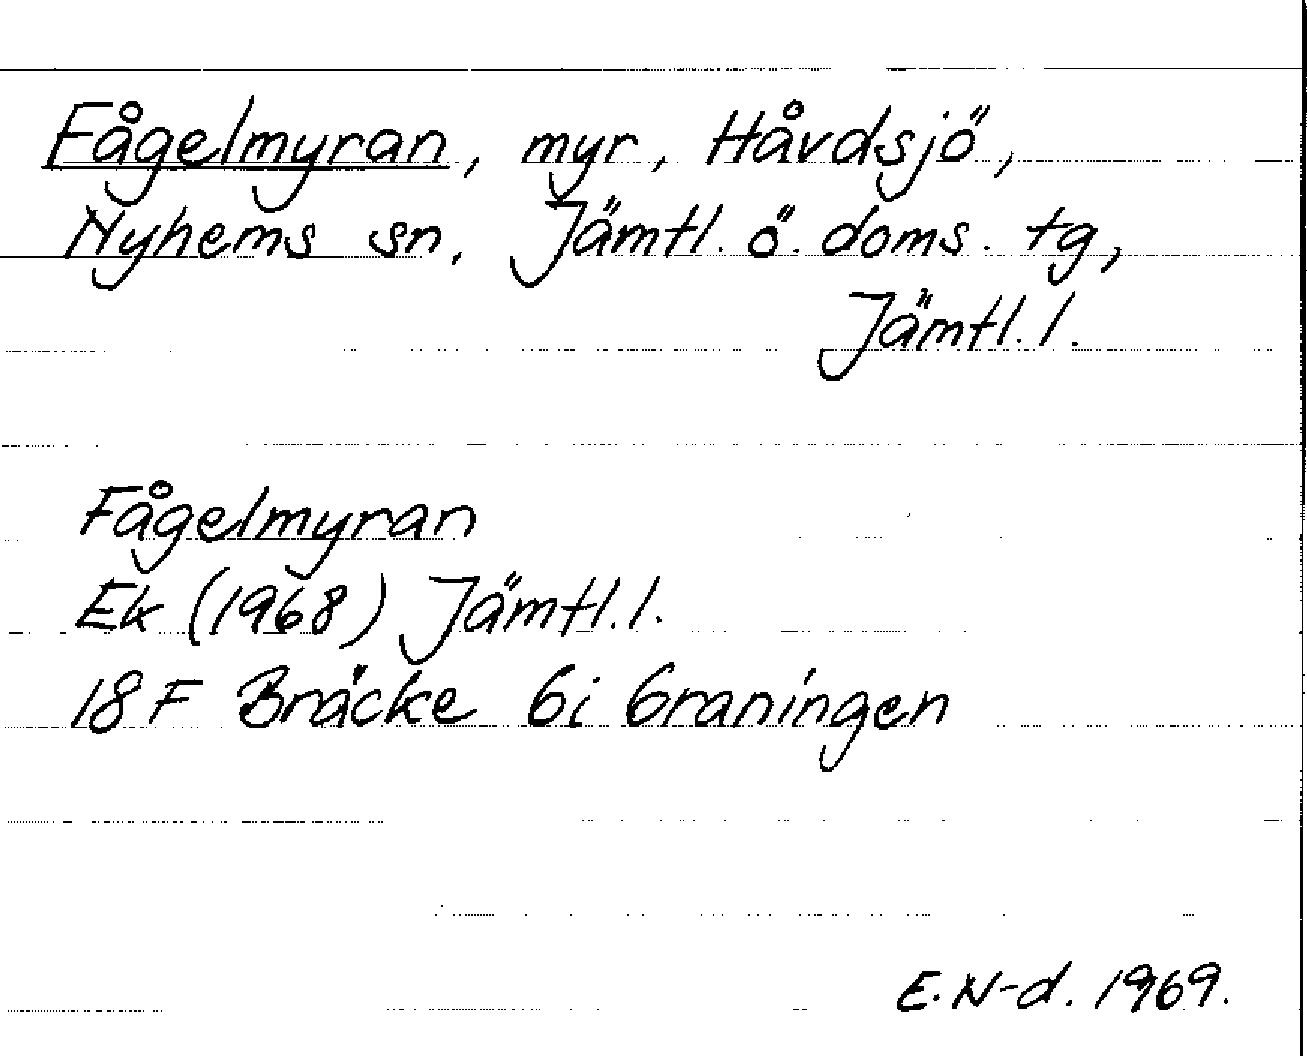 Fågelmyran, myr, Håvdsjö,
Nyhems sn, Jämtl. ö. doms. tg,
Jämtl. l.
Fågelmyran
Ek (1968) Jämtl. l.
18 F Bräcke 6i Graningen
E. N-d. 1969.